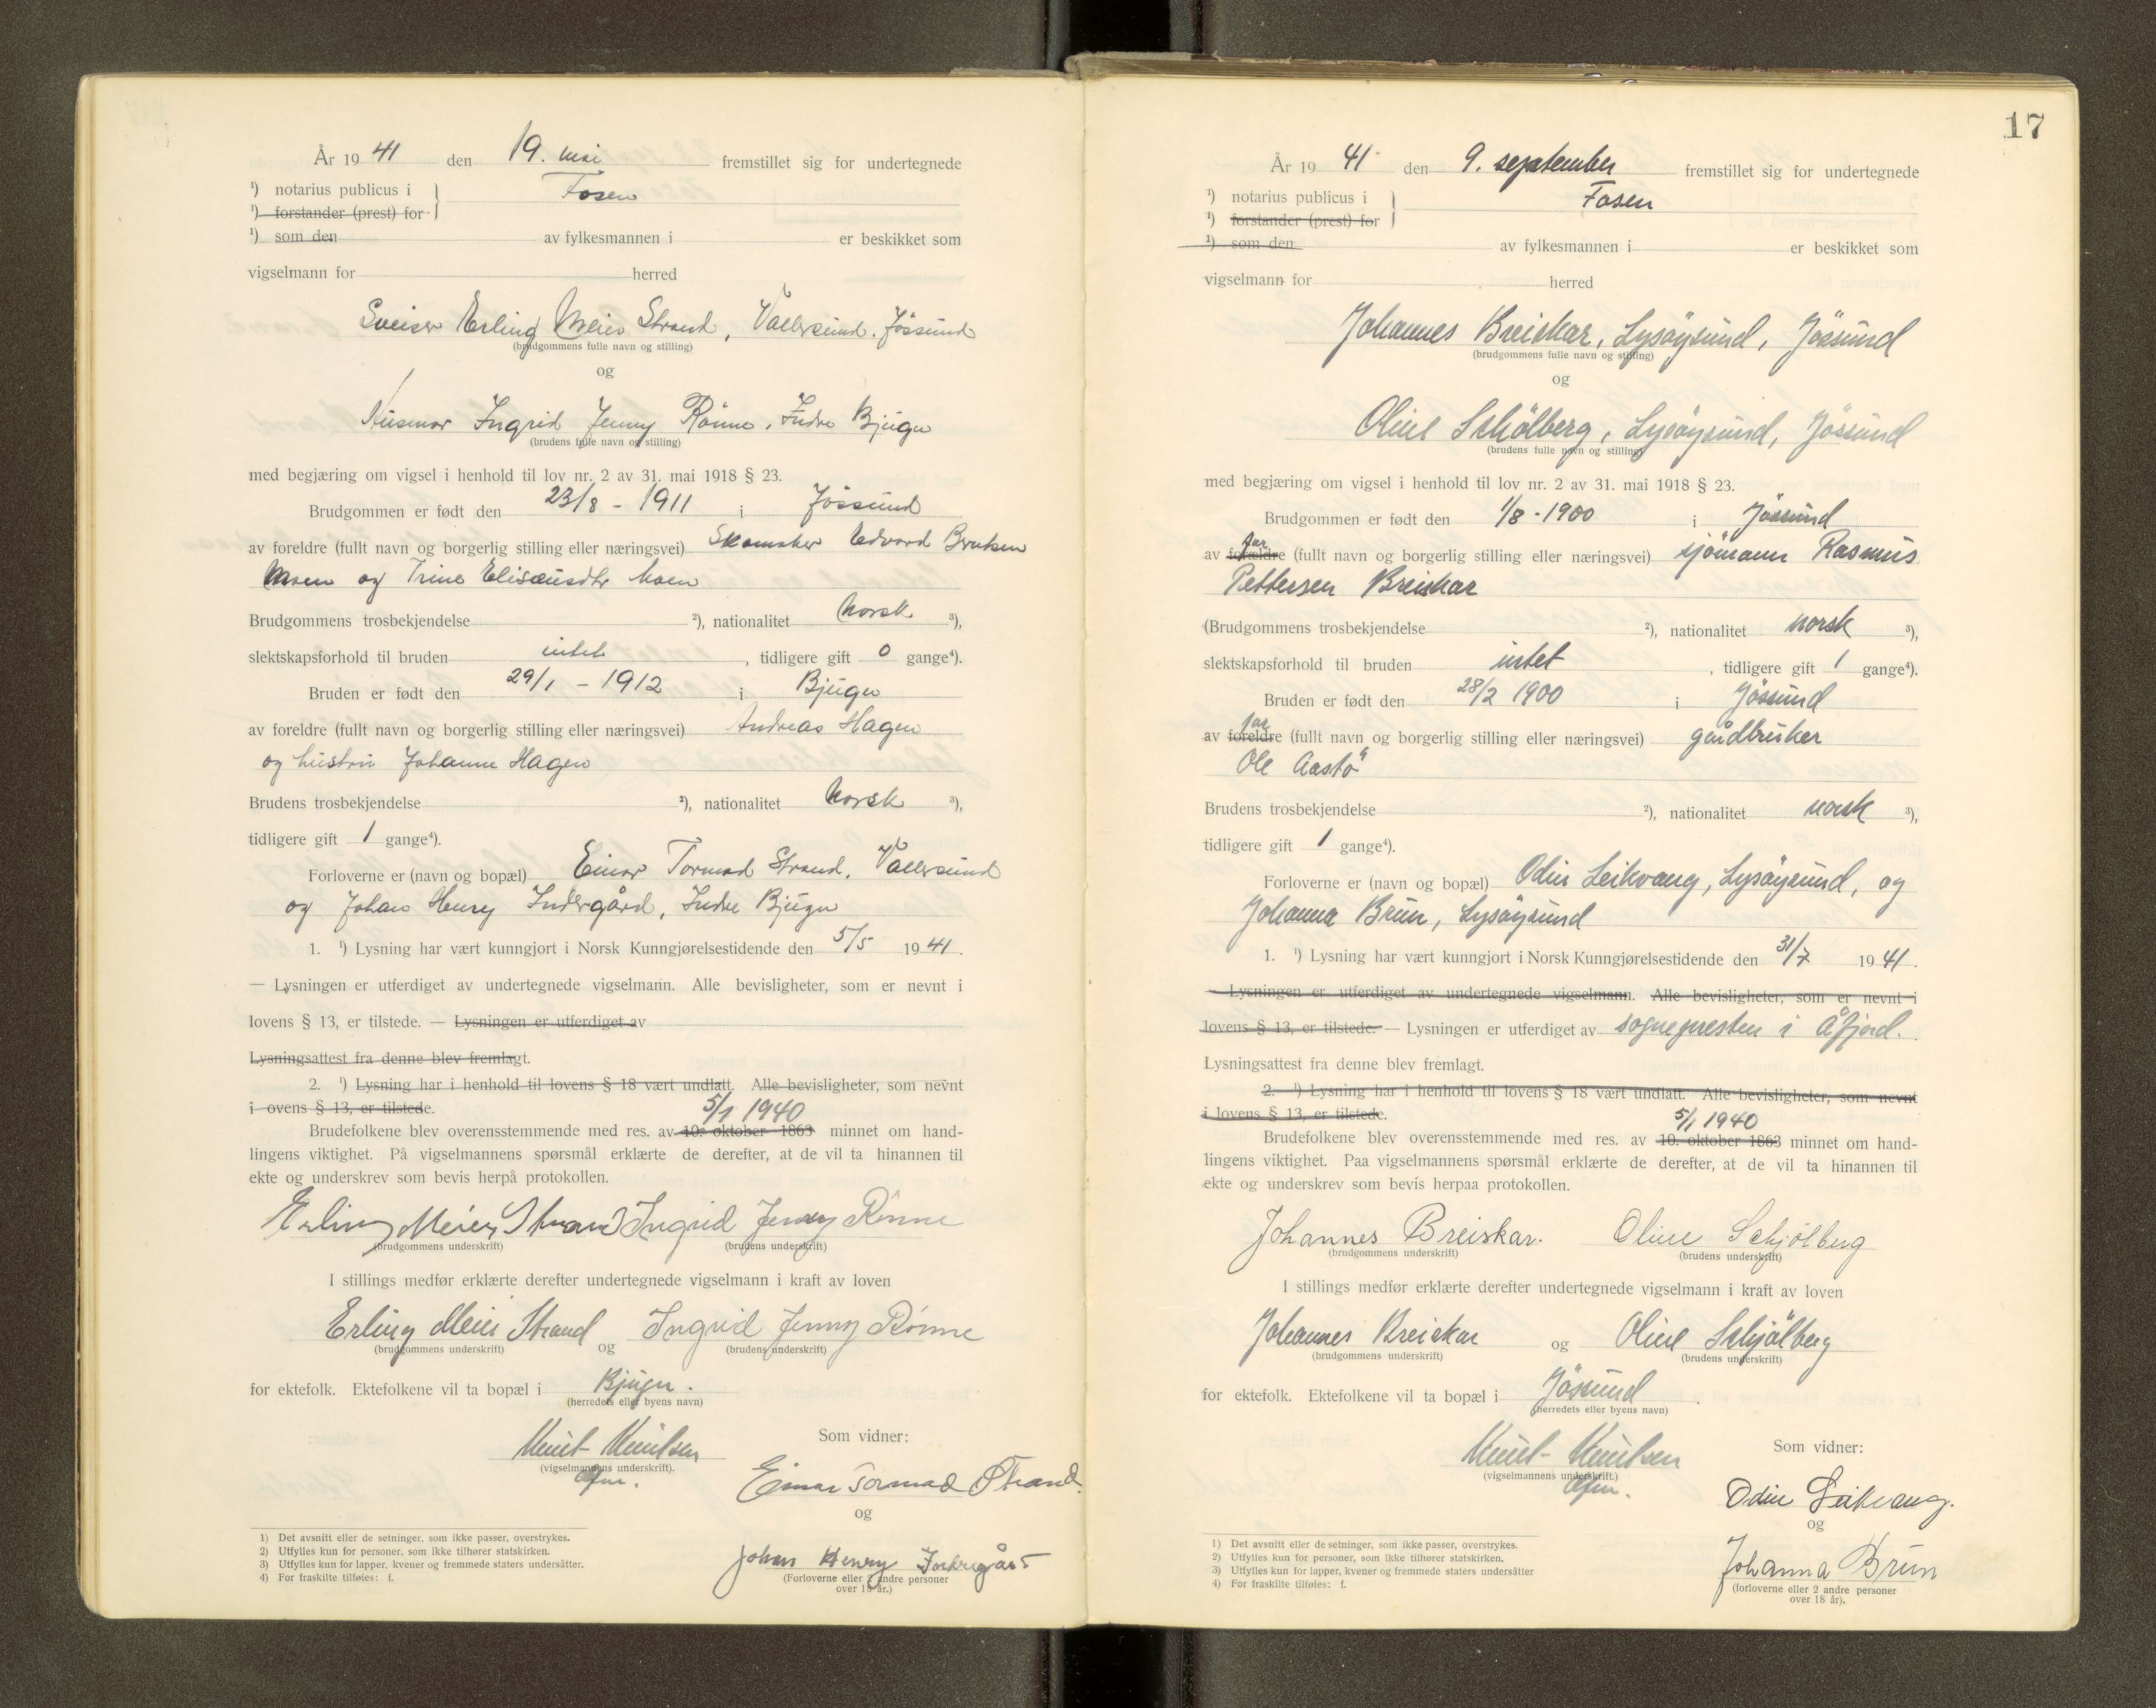 År 19 41 den 19. mai fremstillet sig for undertegnede
¹) notarius publicus i } Fosen
¹) forstander (prest) for
¹) som den av fylkesmannen i er beskikket som
vigselmann for herred
Sveiser Erling Meier Strand, Vallersund, Jössund
(brudgommens fulle navn og stilling)
og
Husmor Ingrid Jenny Rönne, Indre Bjugn
(brudens fulle navn og stilling)
med begjæring om vigsel i henhold til lov nr. 2 av 31. mai 1918 § 23.
Brudgommen er født den 23/8 - 1911 i Jössund
av foreldre (fullt navn og borgerlig stilling eller næringsvei) Skomaker Edvard
Moen og Trine Moen
Brudgommens trosbekjendelse ²), nationalitet Norsk ³),
slektskapsforhold til bruden intet, tidligere gift 0 gange⁴).
Bruden er født den 29/1 - 1912 i Bjugn
av foreldre (fullt navn og borgerlig stilling eller næringsvei) Andreas Hagen
og hustru Johanne Hagen
Brudens trosbekjendelse ²), nationalitet Norsk ³),
tidligere gift 1 gange⁴).
Forloverne er (navn og bopæl) Einar Tormod Strand, Vallersund
og Johan Henry Indergård, Indre Bjugn
1. ¹) Lysning har vært kunngjort i Norsk Kunngjørelsestidende den 5/5 19 41.
— Lysningen er utferdiget av undertegnede vigselmann. Alle bevisligheter, som er nevnt i
lovens § 13, er tilstede. — Lysningen er utferdiget av
Lysningsattest fra denne blev fremlagt.
2. ¹) Lysning har i henhold til lovens § 18 vært undlatt. Alle bevisligheter, som nevnt
i ovens § 13, er tilstede.
5/1 1940
Brudefolkene blev overensstemmende med res. av 10. oktober 1863 minnet om hand-
lingens viktighet. På vigselmannens spørsmål erklærte de derefter, at de vil ta hinannen til
ekte og underskrev som bevis herpå protokollen.
Erling Meier Strand Ingrid Jenny Rönne
(brudgommens underskrift) (brudens underskrift)
I stillings medfør erklærte derefter undertegnede vigselmann i kraft av loven
Erling Meier Strand og Ingrid Jenny Rönne
(brudgommens underskrift) (brudens underskrift)
for ektefolk. Ektefolkene vil ta bopæl i Bjugn.
(herredets eller byens navn)
Som vidner:
Knut Knutsen
(vigselmannens underskrift).
Einar Tormod Strand.
og
Johan Henry Indregård
(Forloverne eller 2 andre personer
over 18 år.)
1) Det avsnitt eller de setninger, som ikke passer, overstrykes.
2) Utfylles kun for personer, som ikke tilhører statskirken.
3) Utfylles kun for lapper, kvener og fremmede staters undersåtter.
4) For fraskilte tilføies: f.
17
År 19 41 den 9. september fremstillet sig for undertegnede
¹) notarius publicus i } Fosen
¹) forstander (prest) for
¹) som den av fylkesmannen i er beskikket som
vigselmann for herred
Johannes Breiskar, Lysöysund, Jössund
(brudgommens fulle navn og stilling)
og
Oline Schölberg, Lysöysund, Jössund
(brudens fulle navn og stilling)
med begjæring om vigsel i henhold til lov nr. 2 av 31. mai 1918 § 23.
Brudgommen er født den 1/8 - 1900 i Jössund
far
av foreldre (fullt navn og borgerlig stilling eller næringsvei) sjömann Rasmus
Pettersen Breiskar
(Brudgommens trosbekjendelse ²), nationalitet norsk ³),
slektskapsforhold til bruden intet, tidligere gift 1 gange⁴).
Bruden er født den 28/2 1900 i Jössund
far
av foreldre (fullt navn og borgerlig stilling eller næringsvei) gårdbruker
Ole Aastö
Brudens trosbekjendelse ²), nationalitet norsk ³),
tidligere gift 1 gange⁴).
Forloverne er (navn og bopæl) Odin Leikvang, Lysöysund, og
Johanna Brun, Lysöysund
1. ¹) Lysning har vært kunngjort i Norsk Kunngjørelsestidende den 31/7 19 41.
— Lysningen er utferdiget av undertegnede vigselmann. Alle bevisligheter, som er nevnt i
lovens § 13, er tilstede. — Lysningen er utferdiget av sognepresten i Åfjord.
Lysningsattest fra denne blev fremlagt.
2. ¹) Lysning har i henhold til lovens § 18 vært undlatt. Alle bevisligheter, som nevnt
i lovens § 13, er tilstede.
5/1 1940
Brudefolkene blev overensstemmende med res. av 10. oktober 1863 minnet om hand-
lingens viktighet. Paa vigselmannens spørsmål erklærte de derefter, at de vil ta hinannen til
ekte og underskrev som bevis herpaa protokollen.
Johannes Breiskar. Oline Schjölberg
(brudgommens underskrift) (brudens underskrift)
I stillings medfør erklærte derefter undertegnede vigselmann i kraft av loven
Johannes Breiskar og Oline Schjölberg
(brudgommens underskrift) (brudens underskrift)
for ektefolk. Ektefolkene vil ta bopæl i Jössund.
(herredets eller byens navn)
Som vidner:
Knut Knutsen
(vigselmannens underskrift.)
Odin Leikvang.
og
Johanna Brun
(forloverne eller 2 andre personer
over 18 år).
1) Det avsnitt eller de setninger, som ikke passer, overstrykes.
2) Utfylles kun for personer, som ikke tilhører statskirken.
3) Utfylles kun for lapper, kvener og fremmede staters undersåtter
4) For fraskilte tilføies: f.